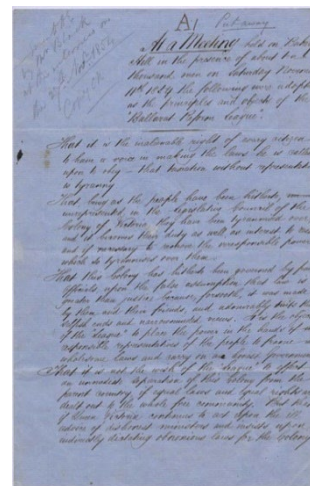 A/
Put away
At a Meeting held on Bakery
Hill in the presence of about ten
thousand men on Saturday November
11th 1854 the following were adopted
as the principles and objects of the
"Ballarat Reform League".
That it is the inalienable right of every citizen
to have a voice in making the laws he is called
upon to obey – that taxation without representation
is tyranny
That being as the people have been hitherto, un-
represented in the Legislative Council of the
Colony of Victoria, they have been tyrannised over
and it becomes their duty as well as interest to resist
and if necessary to remove the irresponsible power
which so tyrannises over them.
That this Colony has hitherto been governed by paid
officials, upon the false assumption that law is
greater than justice because, forsooth, it was made
by them and their friends, and admirably suits their
selfish ends and narrowminded views. It is the object
of the "league" to place the power in the hands of
responsible representatives of the people to frame
wholesome laws and carry on an honest Government
That it is not the wish of the "league" to effect
an immediate separation of this Colony from the
parent country, if equal laws and equal rights are
dealt out to the whole free community. But that
if Queen Victoria continues to act upon the ill
advice of dishonest ministers and insists upon
indirectly dictating obnoxious laws for the Colony